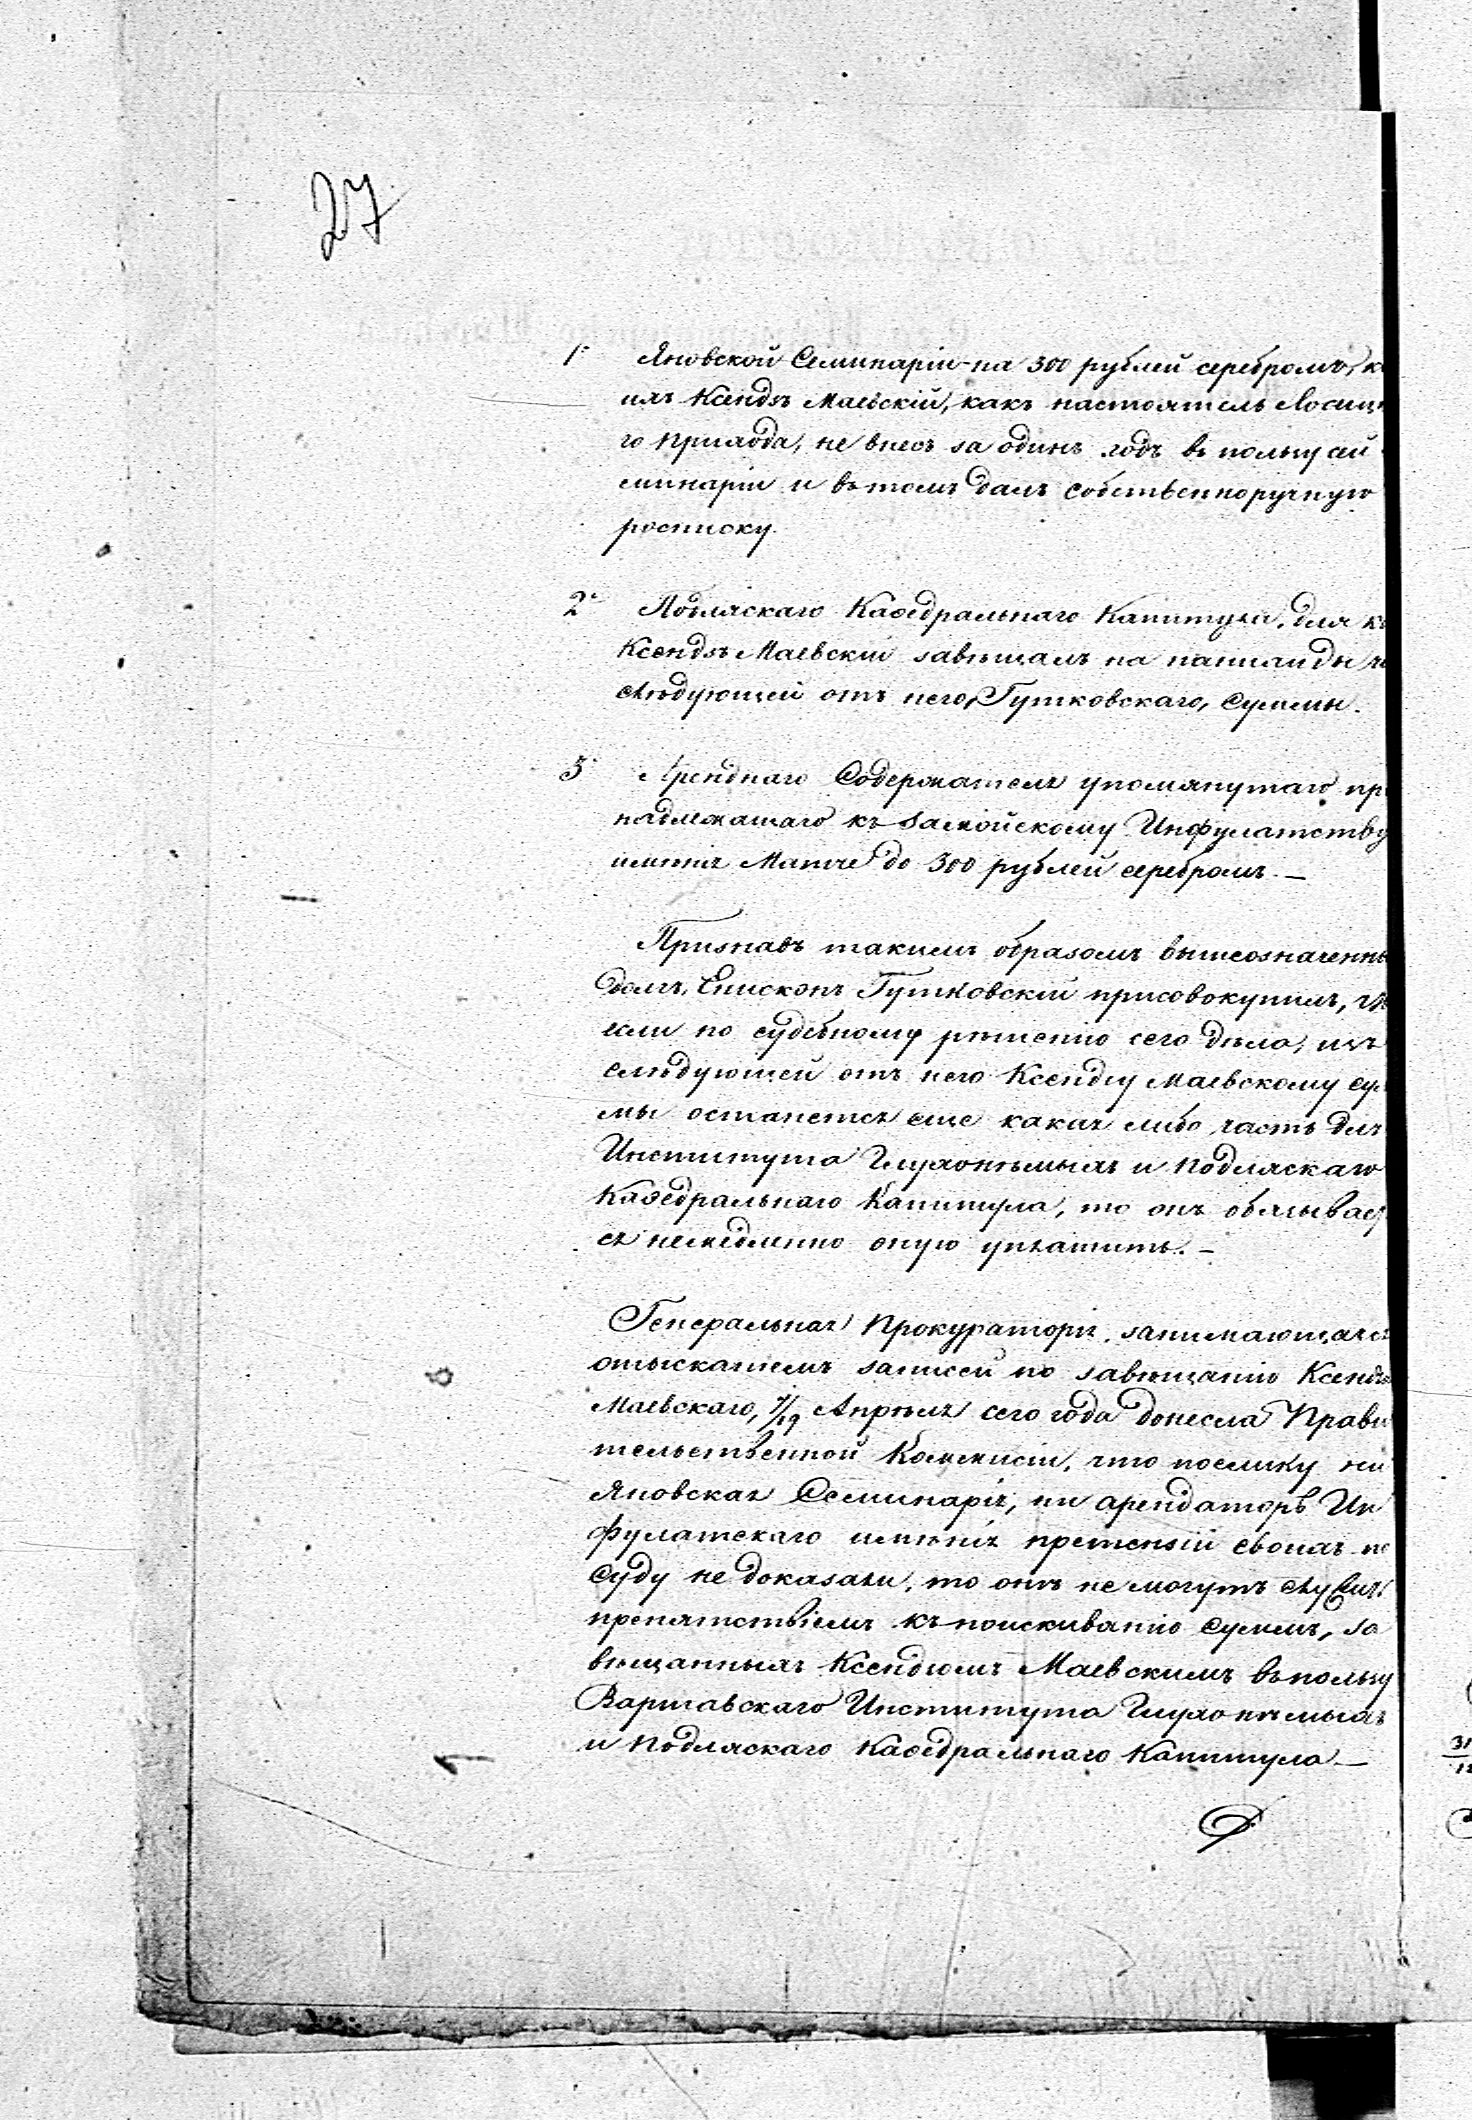 27
1. Яновской Семинаріи на 300 рублей серебромъ, к
ихъ Ксендзъ Маевскій, какъ настоятель Лосиц
го прихода, не внесъ за одинъ годъ въ пользу сей
минаріи и въ томъ далъ собственноручную
росписку.
2. Подляскаго Каѳедральнаго Капитула, для к
Ксендзъ Маевскій завѣщалъ на панихиды
слѣдующей отъ него, Гутковскаго, суммы.
3. Аренднаго Содержателя упомянутаго пр
надлежащаго къ Замойскому Инфулатству
имѣнія Матче до 300 рублей серебромъ. —
Признавъ такимъ образомъ вышеозначенны
долгъ, Епископъ Гутковскій присовокупилъ,
если по судебному рѣшенію сего дѣла, изъ
слѣдующей отъ него Ксендзу Маевскому су
мы останется еще какая либо часть для
Института Глухонѣмыхъ и Подляскаго
Каѳедральнаго Капитула, то онъ обязывает
ся немедленно оную уплатить. —
Генеральная Прокураторія, занимающаяся
отысканіемъ записей по завѣщанію Ксендза
Маевскаго, 7/19 Апрѣля сего года донесла Прави
тельственной Коммисіи, что поелику ни
Яновская Семинарія, ни арендаторъ Ин
фулатскаго имѣнія претензій своихъ по
суду не доказали, то онѣ не могутъ служить
препятствіемъ къ поискиванію суммъ, за
вѣщанныхъ Ксендзомъ Маевскимъ въ пользу
Варшавскаго Института Глухонѣмыхъ
и Подляскаго Каѳедральнаго Капитула —